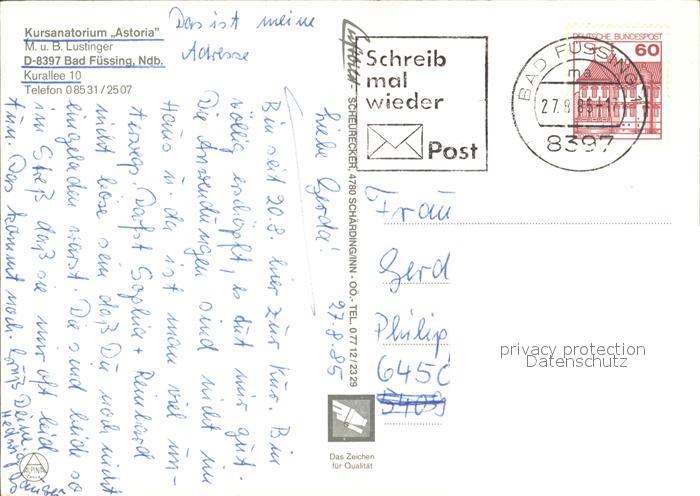 Kursanatorium „Astoria"
M. u. B. Lustinger
D-8397 Bad Füssing, Ndb.
Kurallee 10
Telefon 08531/2507
Das ist meine
Adresse
27.8.85
Liebe Gerda!
Bin seit 20.8. hier zur Kur. Bin
völlig erschöpft, es tut mir gut.
Die Anwendungen sind nicht im
Haus u. da ist man viel un-
terwegs. Darfst Sophie + Reinhard
nicht böse sein daß Du noch nicht
eingeladen warst. Die sind beide so
im Streß daß sie mir oft leid
tun. Das kommt noch. Gruß Deine
SCHEURECKER, 4780 SCHÄRDING/INN - OÖ. - TEL. 07712/2329
Schreib
mal
wieder
Post
DEUTSCHE BUNDESPOST
60
BAD FÜSSING 1
ma
27.8.85-17
8397
Frau
Gerd
Philip
6450
privacy protection
Datenschutz
Das Zeichen
für Qualität
ALPINA